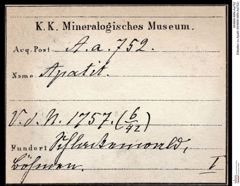 K. K. Mineralogisches Museum.
Acq. Post A. a. 752.
Name Apatit.
V. d. N. 1757. (6/42)
Fundort Schlackenwald,
Böhmen. I